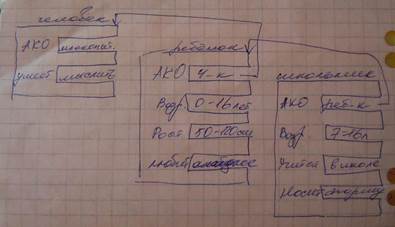 человек
АКО млекопит.
умеет мыслит
ребенок
АКО ч-к
Возр. 0-16 лет
Рост 50-100см
любит
школьник
АКО реб-к
Возр 7-16л
Учится в школе
Носит форму